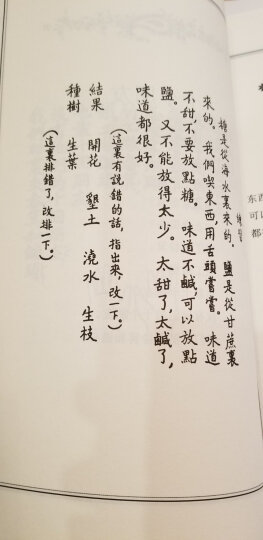 糖是從海水裏來的，鹽是從甘蔗裏
來的。 我們喫東西，用舌頭嘗嘗。 味道
不甜，不要放點糖。 味道不鹹，可以放點
鹽。 又不能放得太少。 太甜了，太鹹了，
味道都很好。
（這裏有說錯的話，指出來，改一下。）
結果 開花 墾土 澆水 生枝
種樹 生葉
（這裏排錯了，改排一下。）
东西
可
都